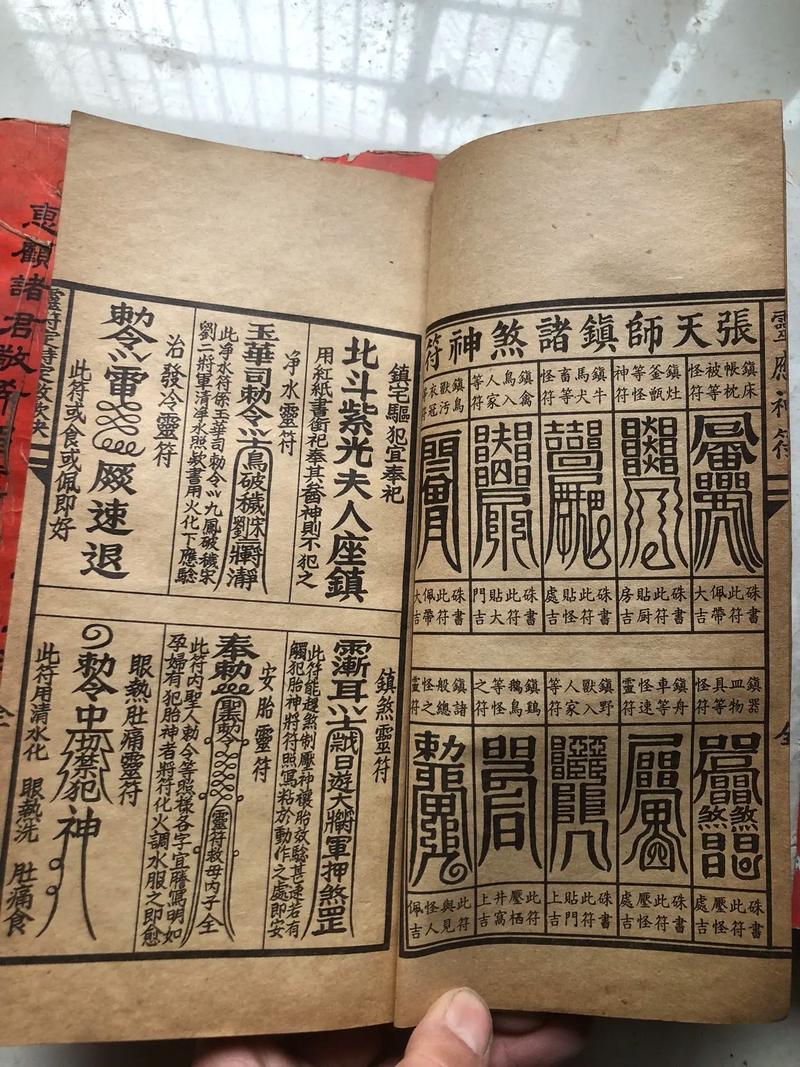 張天師鎮諸煞神符
鎮床帳枕被等怪符
鎮灶釜甑怪等神符
鎮牛馬犬畜等怪符
鎮禽鳥入人家等符
硃書此符佩帶大吉
硃書此符貼厨房吉
硃書此符貼怪處吉
硃書此符貼大門吉
此符佩帶大吉
鎮器皿物具等怪符
鎮舟車等速怪靈符
鎮野獸入人家等符
鎮鵝鳥等怪之符
鎮諸般怪總之靈符
硃書此符壓怪處吉
硃書此符壓怪處吉
硃書此符貼門上吉
此符壓栖井窩上吉
此符與見怪人佩吉
鎮宅驅犯宜奉祀
北斗紫光夫人座鎮
用紅紙書衝祀奉其酋神則不犯之
淨水靈符
玉華司勅令
鳥破穢宋劉將瀞
此净水符係玉華司勅令以九鳳破穢宋
劉二將軍清淨水照敕書用火化下應驗
治發冷靈符
勅令雷
厥速退
此符或食或佩即好
鎮煞靈符
漸耳
日遊大將軍押煞罡
此符能趕煞制壓神禳胎效騐甚速若有
觸犯胎神將符照寫粘於動作之處即安
安胎靈符
奉勅
聖勅令
靈符救母內子全
此符内聖人勅令等照樣各字宜謄寫明如
孕婦有犯胎神者將符化火調水服之即愈
眼熱肚痛靈符
勅令中
禁犯神
此符用清水化
眼熱洗
肚痛食
靈應神符
全
惠顧諸君敬希
全